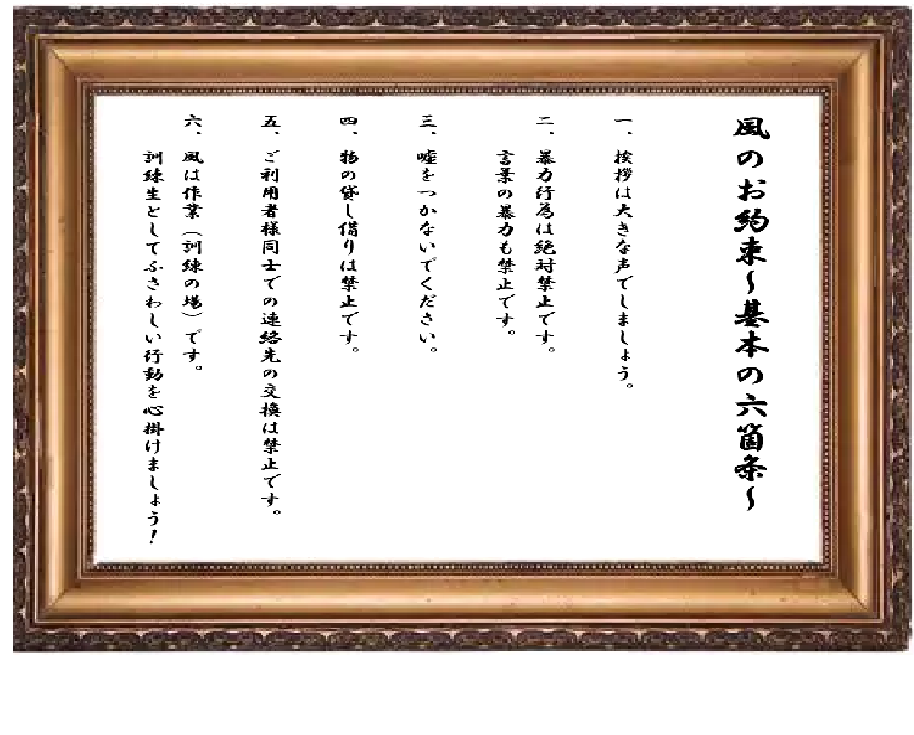 風のお約束～基本の六箇条～
一、挨拶は大きな声でしましょう。
二、暴力行為は絶対禁止です。
言葉の暴力も禁止です。
三、嘘をつかないでください。
四、物の貸し借りは禁止です。
五、ご利用者様同士での連絡先の交換は禁止です。
六、風は作業（訓練の場）です。
訓練生としてふさわしい行動を心掛けましょう！